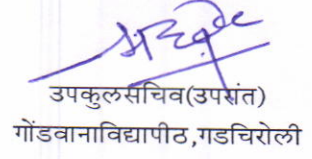 उपकुलसचिव(उपसंत)
गोंडवानाविद्यापीठ,गडचिरोली